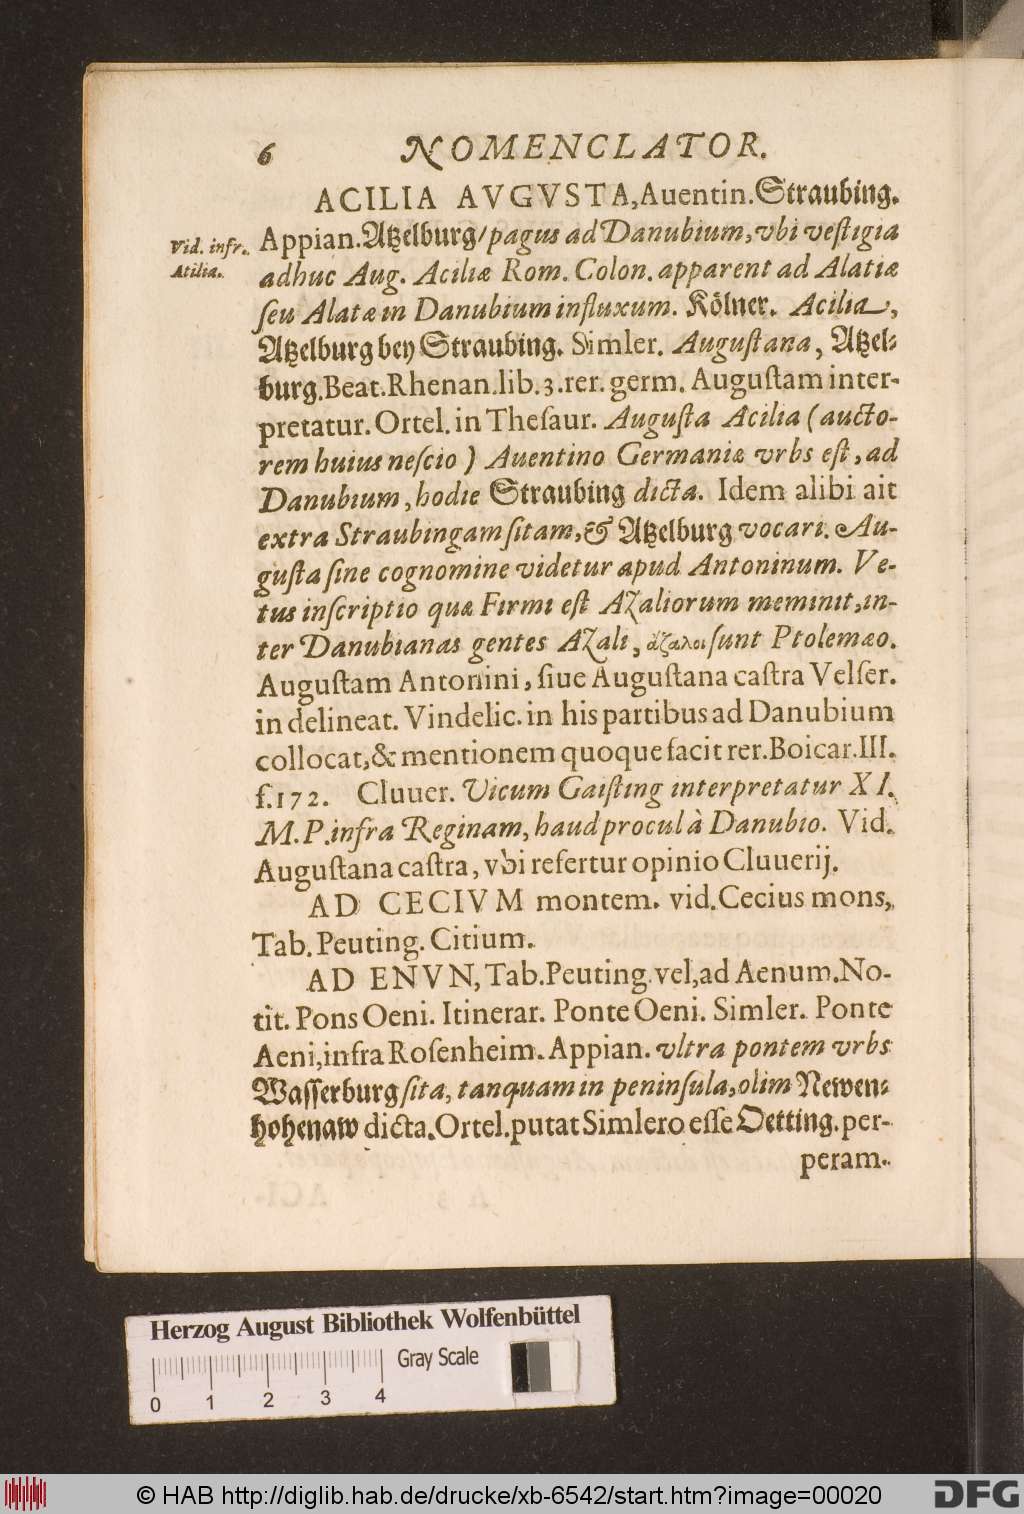 6 NOMENCLATOR.
ACILIA AVGVSTA, Auentin. Straubing.
Vid. infr.
Atilia.
Appian. Atzelburg/ pagus ad Danubium, vbi veſtigia
adhuc Aug. Aciliæ Rom. Colon. apparent ad Alatiæ
ſeu Alatæ in Danubium influxum. Kölner. Acilia,
Atzelburg bey Straubing. Simler. Auguſtana, Atzel-
burg. Beat. Rhenan. lib. 3. rer. germ. Auguſtam inter-
pretatur. Ortel. in Theſaur. Auguſta Acilia (aucto-
rem huius neſcio) Auentino Germaniæ vrbs eſt, ad
Danubium, hodie Straubing dicta. Idem alibi ait
extra Straubingam ſitam, & Atzelburg vocari. Au-
guſta ſine cognomine videtur apud Antoninum. Ve-
tus inſcriptio quæ Firmi eſt Azaliorum meminit, in-
ter Danubianas gentes Azali, ἄζαλοι ſunt Ptolemæo.
Auguſtam Antonini, ſiue Auguſtana caſtra Velſer.
in delineat. Vindelic. in his partibus ad Danubium
collocat, & mentionem quoque facit rer. Boicar. III.
f. 172. Cluuer. Vicum Gaiſting interpretatur XI.
M. P. infra Reginam, haud procul à Danubio. Vid.
Auguſtana caſtra, vbi refertur opinio Cluuerij.
AD CECIVM montem. vid. Cecius mons,
Tab. Peuting. Citium.
AD ENVN, Tab. Peuting. vel, ad Aenum. No-
tit. Pons Oeni. Itinerar. Ponte Oeni. Simler. Ponte
Aeni, infra Roſenheim. Appian. vltra pontem vrbs
Waſſerburg ſita, tanquam in peninſula, olim Newen-
hohenaw dicta. Ortel. putat Simlero eſſe Oetting. per-
peram.
Herzog August Bibliothek Wolfenbüttel
Gray Scale
0 1 2 3 4
© HAB http://diglib.hab.de/drucke/xb-6542/start.htm?image=00020
DFG